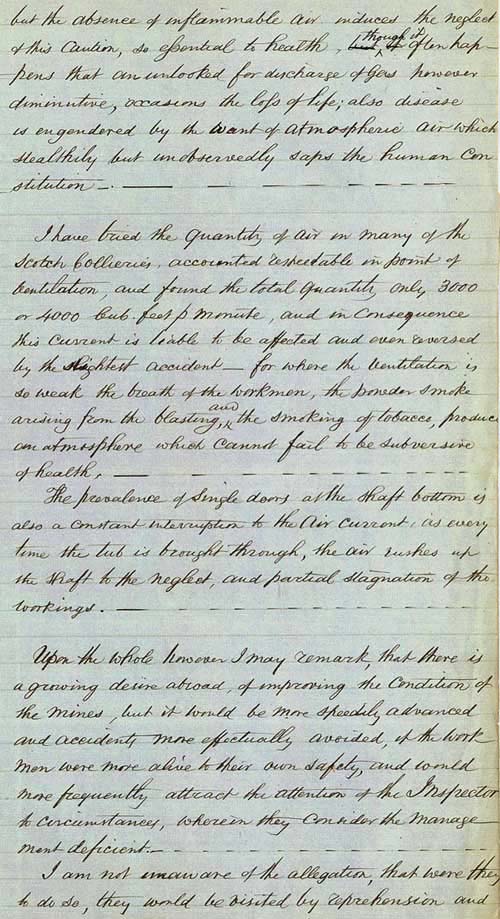 but the absence of inflammable air induces the neglect
of this Caution, so essential to health, though it often hap-
pens that an unlooked for discharge of Gas however
diminutive, occasions the loss of life; also disease
is engendered by the want of atmospheric air which
stealthily but unobservedly saps the human Con
stitution —.
I have tried the Quantity of air in many of the
Scotch Collieries, accounted respectable in point of
Ventilation, and found the total Quantity only 3000
or 4000 Cub. feet p minute, and in Consequence
this Current is liable to be affected and even reversed
by the slightest accident — for where the Ventilation is
so weak the breath of the workmen, the powder smoke
arising from the blasting, and the smoking of tobacco, produce
an atmosphere which cannot fail to be subversive
of health. —
The prevalence of Single doors at the Shaft bottom is
also a constant interruption to the Air current, as every
time the tub is brought through, the air rushes up
the Shaft to the neglect, and partial stagnation of the
workings. —
Upon the whole however I may remark, that there is
a growing desire abroad, of improving the Condition of
the Mines, but it would be more speedily advanced
and accidents more effectually avoided, if the work
men were more alive to their own safety, and would
more frequently attract the attention of the Inspector
to circumstances, wherein they Consider the Manage
ment deficient. —
I am not unaware of the allegation, that were they
to do so, they would be visited by reprehension and